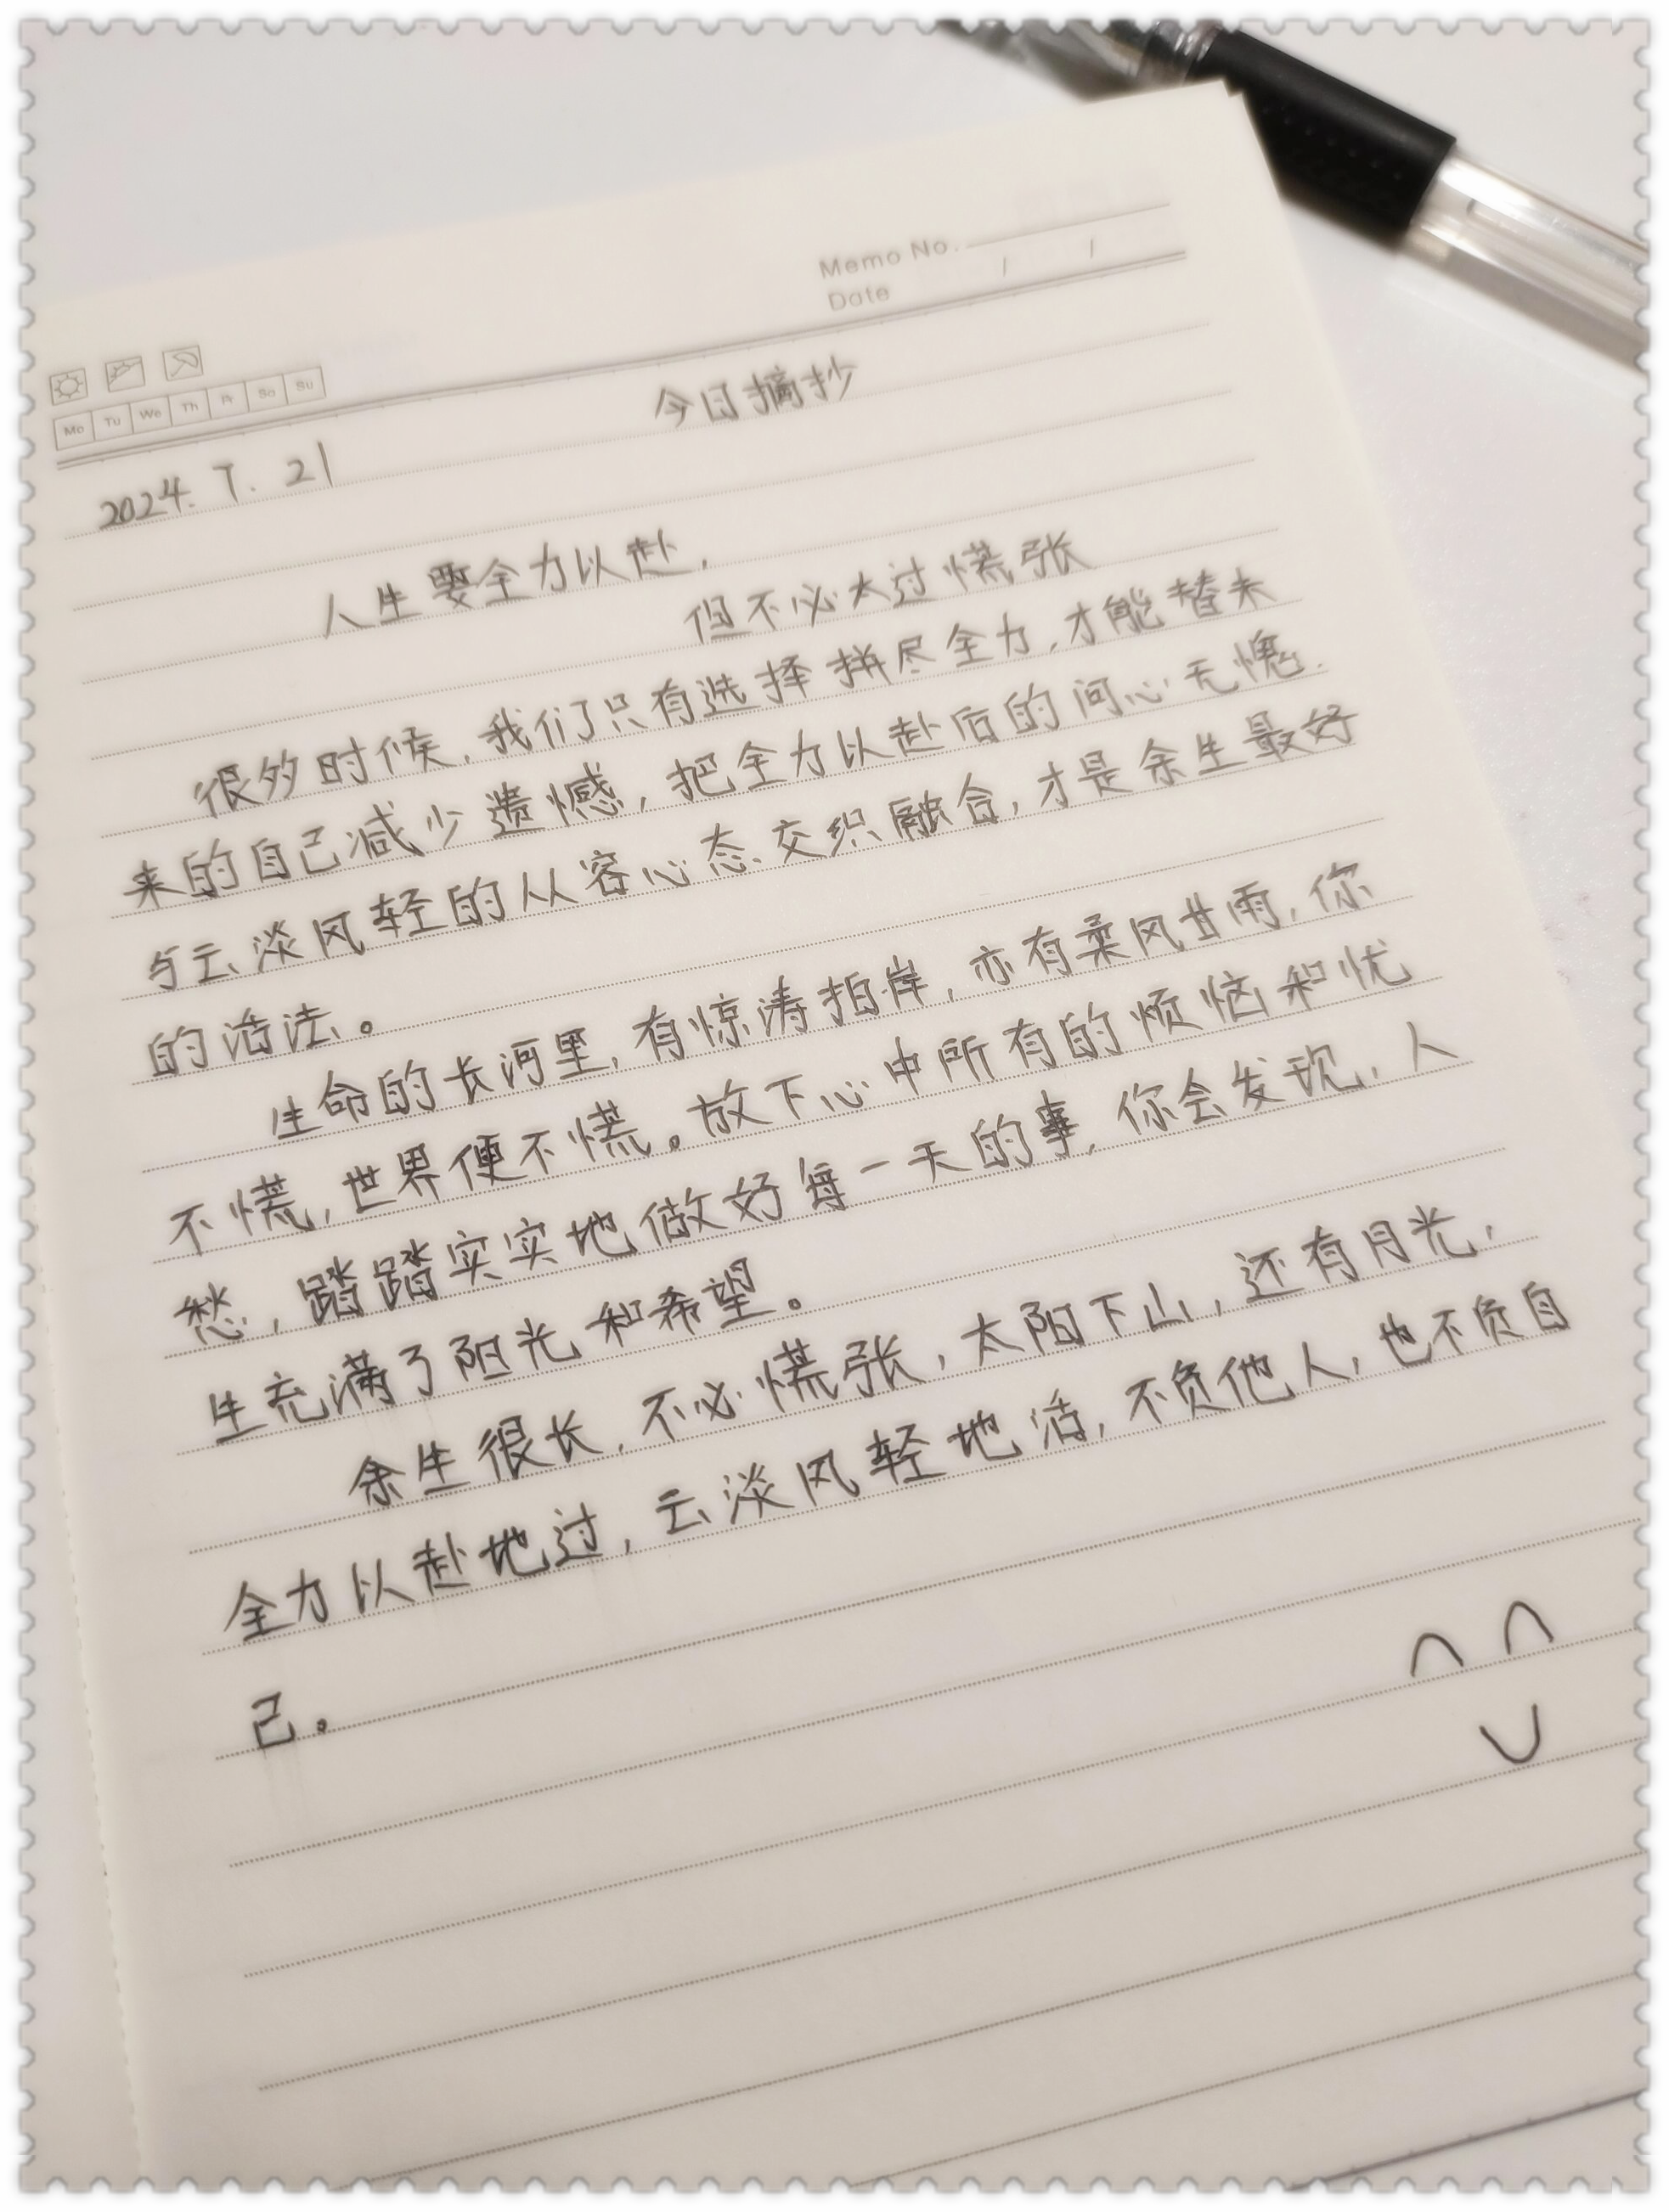 Memo No.
Date / /
Mo Tu We Th Fr Sa Su
今日摘抄
2024.7.21
人生要全力以赴，
但不必太过慌张
很多时候，我们只有选择拼尽全力，才能替未
来的自己减少遗憾，把全力以赴后的问心无愧，
与云淡风轻的从容心态交织融合，才是余生最好
的活法。
生命的长河里，有惊涛拍岸，亦有柔风甘雨，你
不慌，世界便不慌。放下心中所有的烦恼和忧
愁，踏踏实实地做好每一天的事，你会发现，人
生充满了阳光和希望。
余生很长，不必慌张，太阳下山，还有月光，
全力以赴地过，云淡风轻地活，不负他人，也不负自
己。